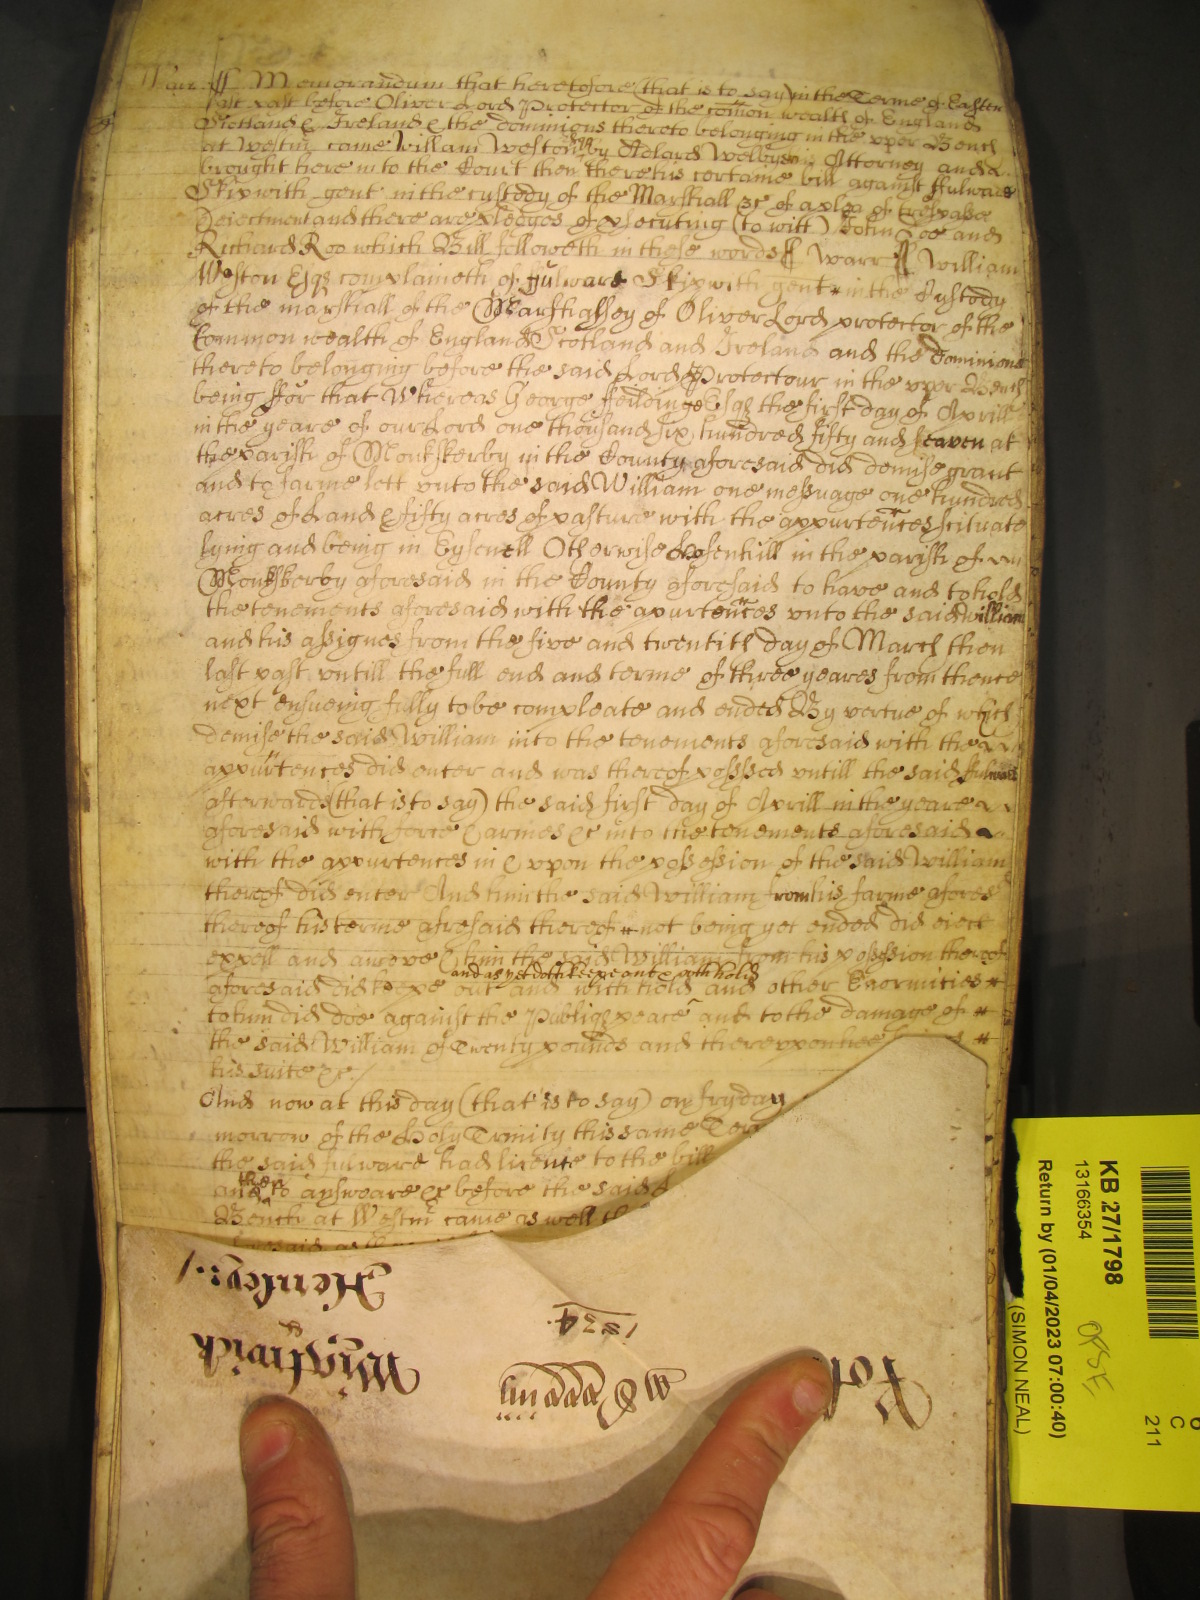 Warr ss Memorandum that heretofore (that is to say) in the Terme of Easter
last past before Oliver Lord Protector of the comon wealth of England
Scotland & Ireland & the dominions thereto belonging in the vper Bench
at Westm came William Weston by Adlard Welby Attorney and
brought here into the Court then there his certaine bill against ffulwarr
Skipwith gent in the custody of the Marshall &c of a plea of trespasse
Deiectment and there are pledges of psecuting (to witt) John Doe and
Richard Roo which Bill followeth in these words ss Warr ss William
Weston Esqz complaineth of ffulwarr Skipwith gent in the Custody
of the marshall of the Marshalsey of Oliver Lord protector of the
Common wealth of England Scotland and Ireland and the Dominions
thereto belonging before the said Lord Protectour in the vper Bench
being ffor that Whereas George ffeildinge Esqz the first day of Aprill
in the yeare of our Lord one thousand six hundred fifty and seaven at
the parish of Monkskerby in the County aforesaid did demise grant
and to farme lett vnto the said William one messuage one hundred
acres of Land & fifty acres of pasture with the appurtences scituate
lying and being in Otherwise in the parish of
Monkskerby aforesaid in the County aforesaid to have and to hold
the tenements aforesaid with the apurtences vnto the said William
and his assignes from the five and twentith day of March then
last past vntill the full end and terme of three yeares from thence
next ensueing fully to be compleate and ended By vertue of which
demise the said William into the tenements aforesaid with the
appurtences did enter and was thereof possessed vntill the said ffulwarr
afterwards (that is to say) the said first day of Aprill in the yeare
aforesaid with force & armes &c into the tenements aforesaid
with the appurtences in & vpon the possession of the said William
thereof did enter And him the said William from his farme afores
thereof his terme afresaid thereof not being yet ended did eiect
expell and amove & him the said William from his possession thereof
and as yet doth keepe out & withhold
aforesaid did keepe out and with hold and other Enormities
to him did doe against the Publiqz peace and to the damage of
the said William of Twenty pounds and therevpon hee
his suite &c /
And now at this day (that is to say) on fryday
morrow of the Holy Trinity this same Ter
the said fulwarr had licence to the bill
then
and to answeare &c before the said
Bench at Westm came as well th
Henley:./
&
Wightwick
1834.
Rot
KB 27/1798
13166354
Return by (01/04/2023 07:00:40)
(SIMON NEAL)
C
211